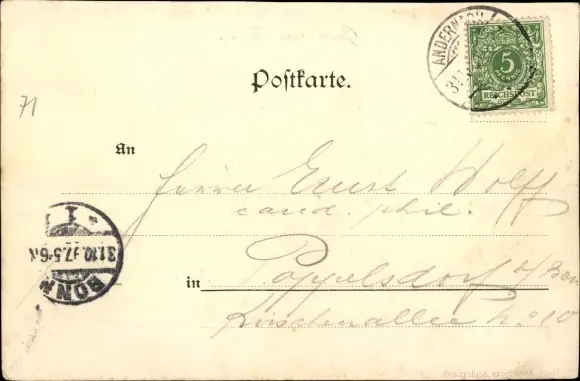 ANDERNACH
5
PFENNIG
REICHSPOST
Postkarte.
71
An
Herrn Ernst Wolff
cand. phil.
in Poppelsdorf b/Bonn
Kirschenallee No 10
BONN
31.10.97.5-6N.
1